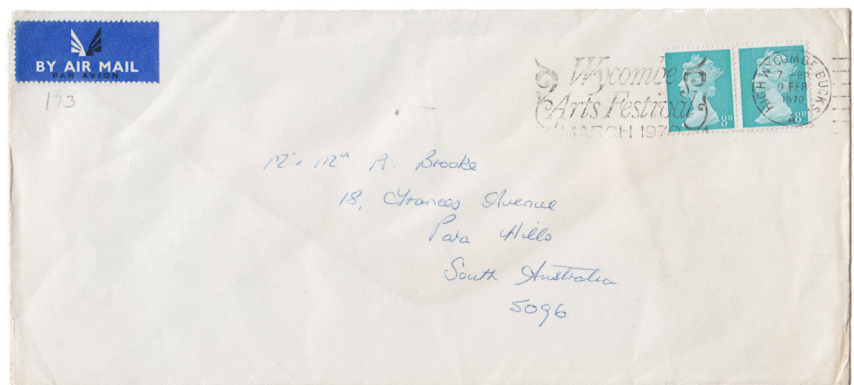 BY AIR MAIL
PAR AVION
193
Wycombe
Arts Festival
MARCH 197
8D
8D
HIGH WYCOMBE BUCKS
9 FEB
1970
Mr. Mrs R. Brooke
18, Frances Avenue
Para Hills
South Australia
5096